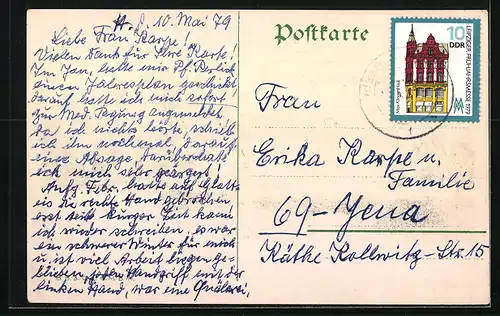 A. d. 10. Mai 79
Liebe Frau Karpe!
Vielen Dank für Ihre Karte!
Im Jan. hatte mir Pf.
einen Jahresplan geschickt
darauf hatte ich mich sofort
zur Med. Tagung angemeldet
Da ich nichts hörte, schrieb
ich ihm nochmal, darauf
eine Absage, darüber hatte
ich mich sehr geärgert!
Anfg. Febr. hatte auf Glatt-
eis die rechte Hand gebrochen
erst seit kurzer Zeit kann
ich wieder schreiben. es war
ein schwerer Winter für mich
u. ist viel Arbeit liegen ge-
blieben, jeder Handgriff mit der
linken Hand, war eine Quälerei,
Postkarte
10
DDR
LEIPZIGER FRÜHJAHRSMESSE 1979
MM
Frau
Erika Karpe u.
Familie
69-Jena
Käthe Kollwitz-Str. 15